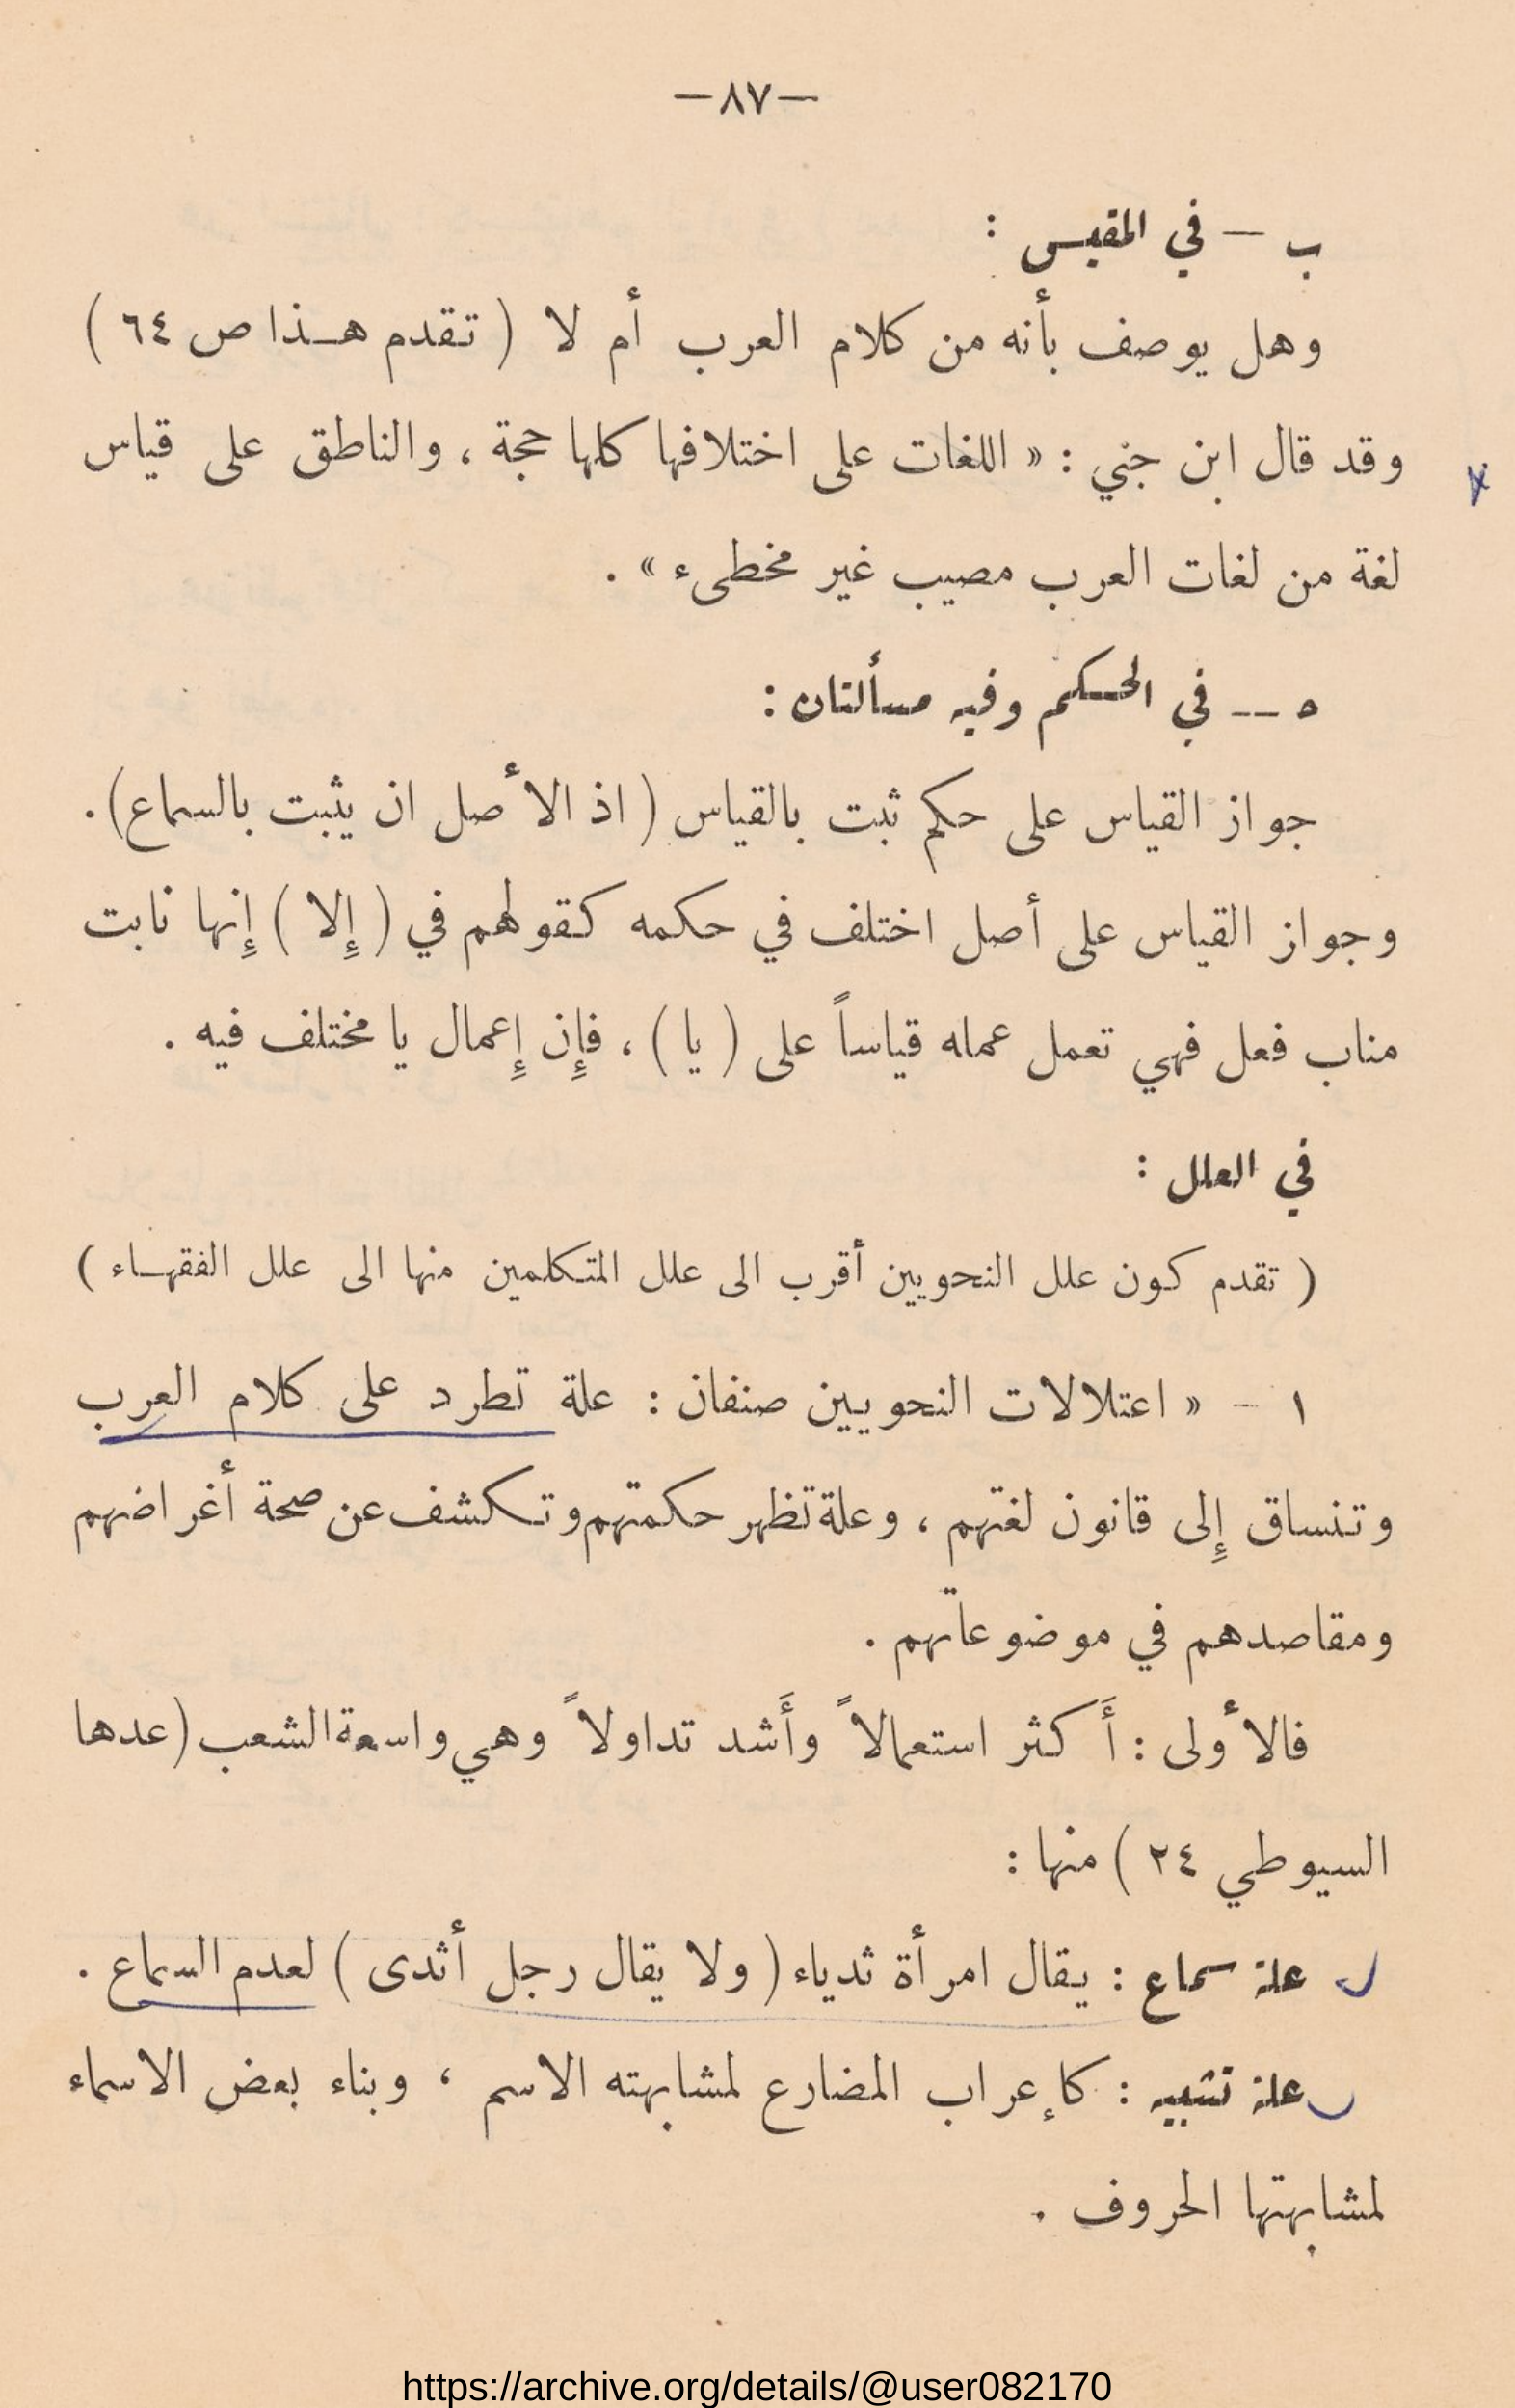 —٨٧—
ب — في المقيس :
وهل يوصف بأنه من كلام العرب أم لا ( تقدم هـذا ص ٦٤ )
وقد قال ابن جني : « اللغات على اختلافها كلها حجة ، والناطق على قياس
لغة من لغات العرب مصيب غير مخطىء » .
٥ — في الحكم وفيه مسألتان :
جواز القياس على حكم ثبت بالقياس ( اذ الأصل ان يثبت بالسماع ) .
وجواز القياس على أصل اختلف في حكمه كقولهم في ( إلا ) إنها نابت
مناب فعل فهي تعمل عمله قياساً على ( يا ) ، فإن إعمال يا مختلف فيه .
في العلل :
( تقدم كون علل النحويين أقرب الى علل المتكلمين منها الى علل الفقهـاء )
١ - « اعتلالات النحويين صنفان : علة تطرد على كلام العرب
وتنساق إلى قانون لغتهم ، وعلة تظهر حكمتهم وتكشف عن صحة أغراضهم
ومقاصدهم في موضوعاتهم .
فالأولى : أَكثر استعمالاً وأَشد تداولاً وهي واسعة الشعب ( عدها
السيوطي ٢٤ ) منها :
علة سماع : يقال امرأة ثدياء ( ولا يقال رجل أثدى ) لعدم السماع .
علة تشبيه : كإعراب المضارع لمشابهته الاسم ، وبناء بعض الاسماء
لمشابهتها الحروف .
https://archive.org/details/@user082170